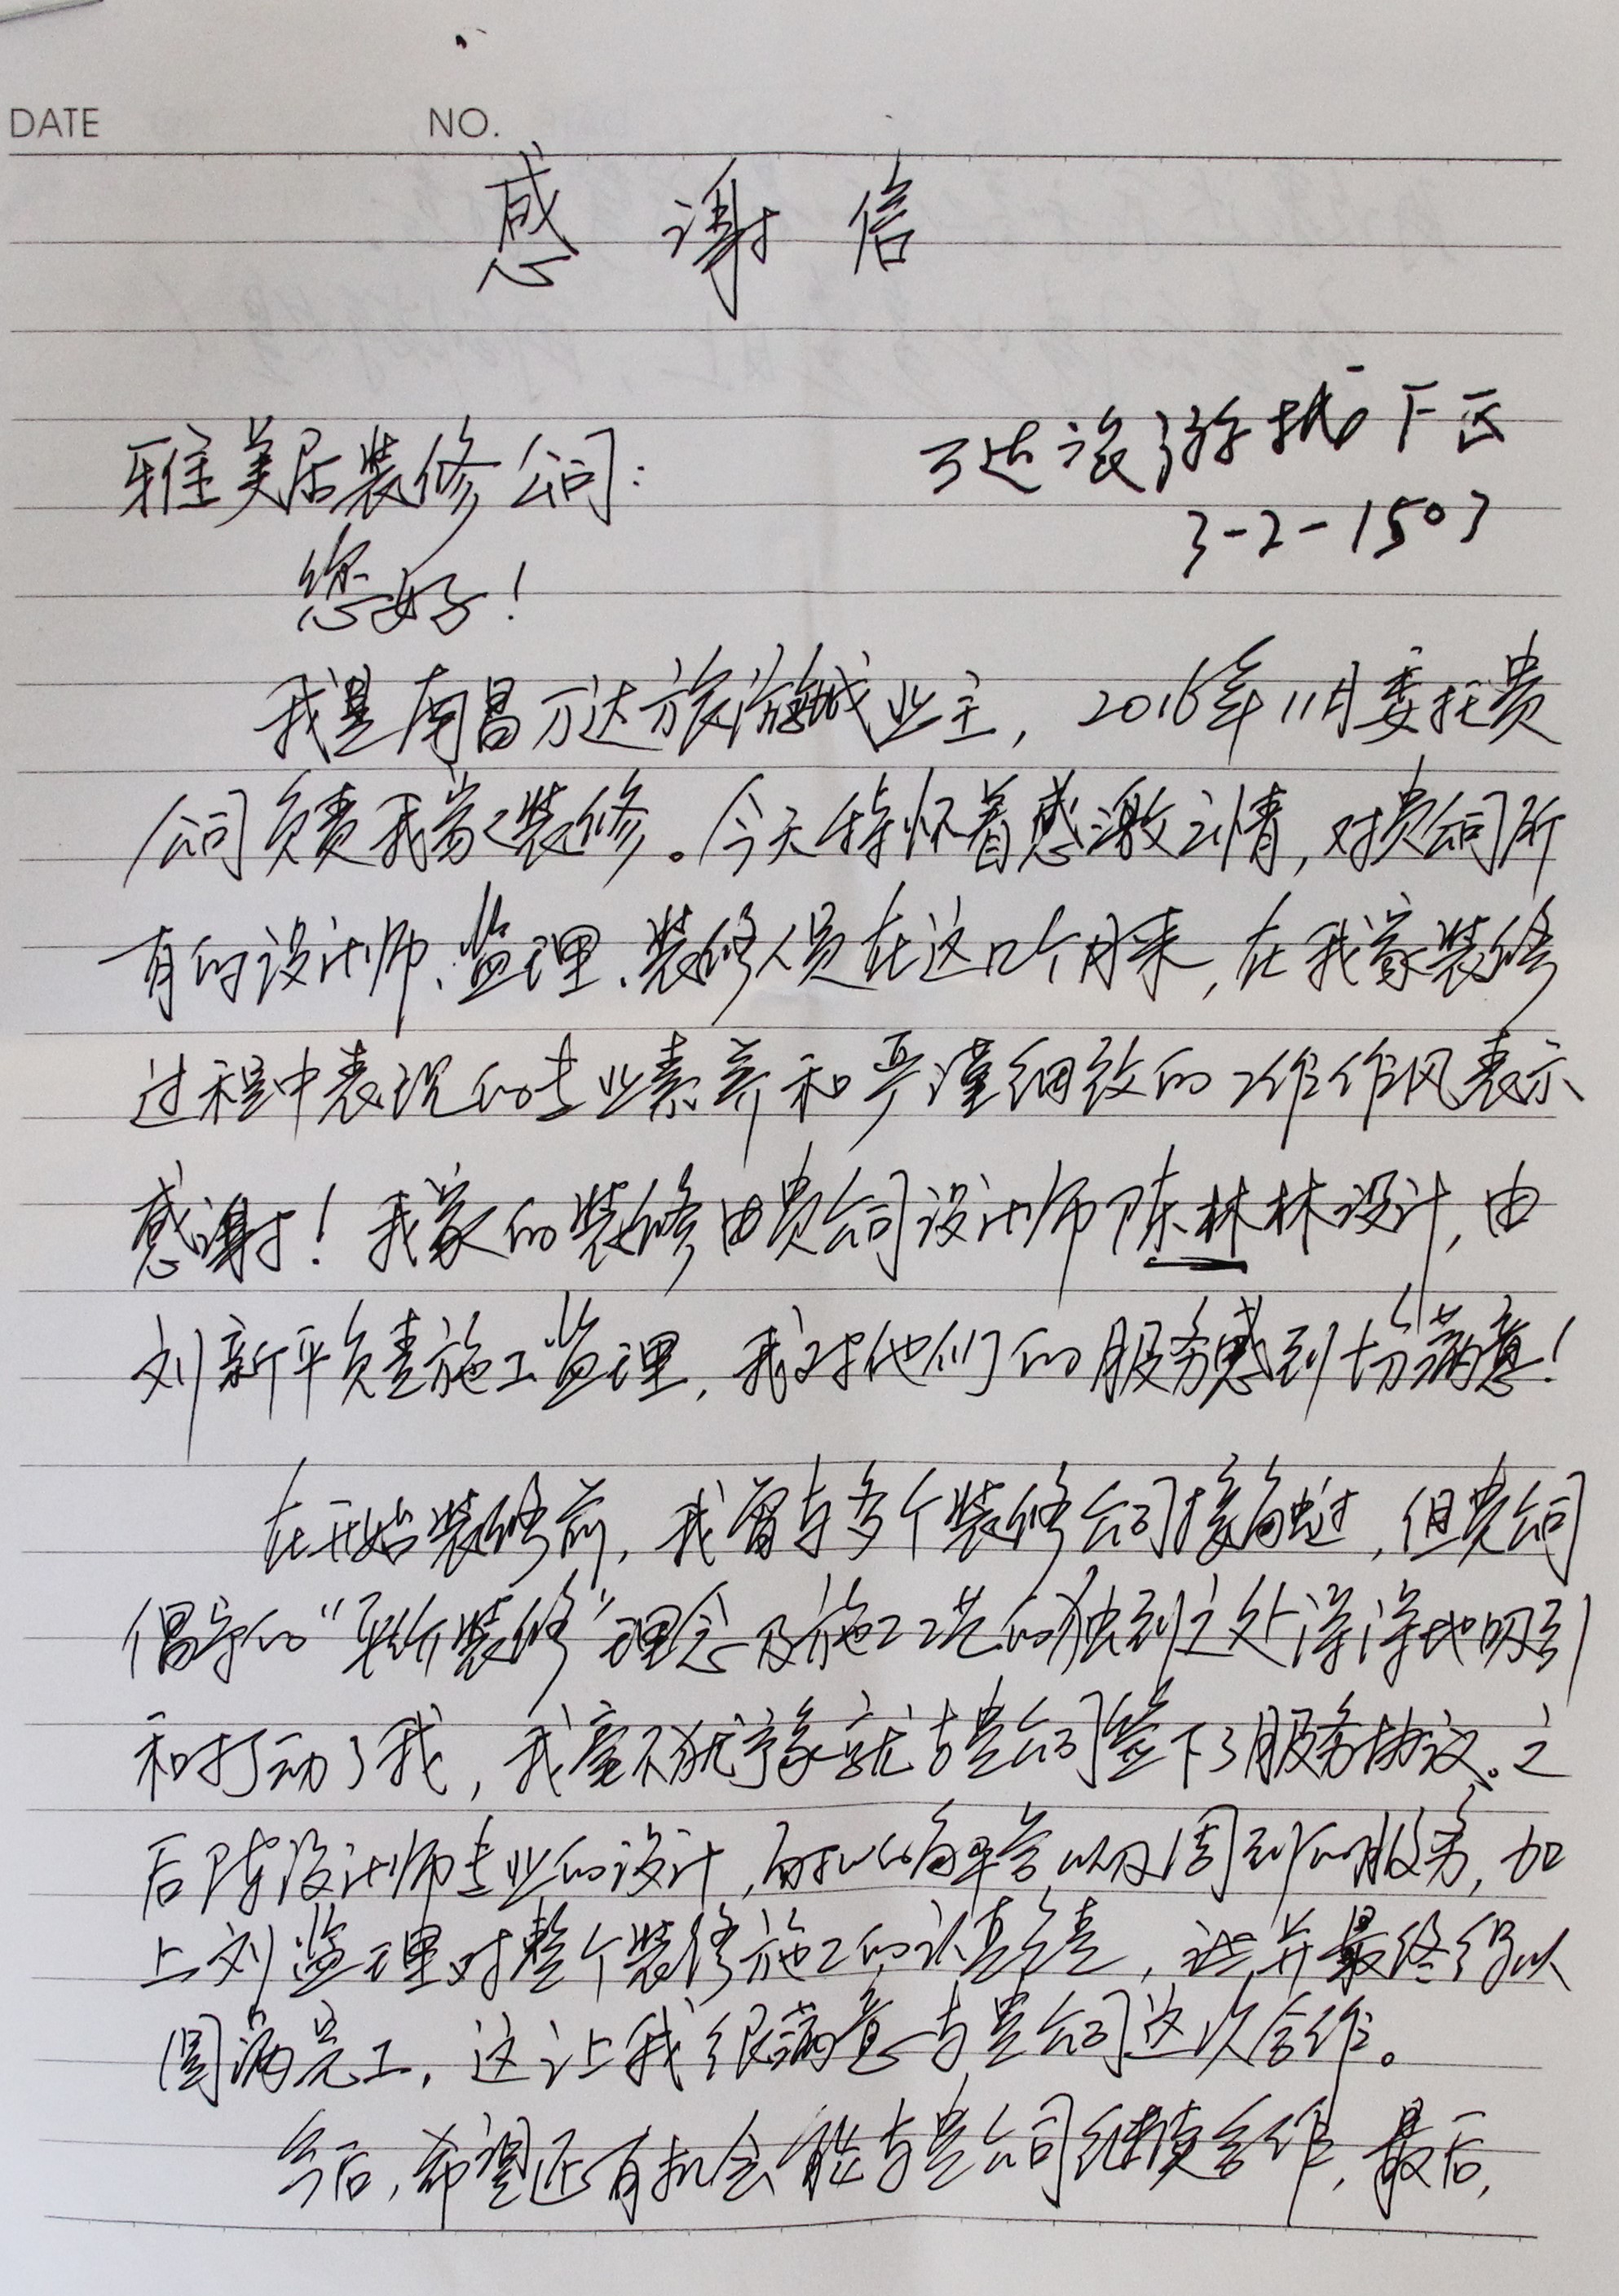 DATE NO.
感谢信
万达旅游城F区
雅美居装修公司:
3-2-1503
您好!
我是南昌万达旅游城业主, 2016年11月委托贵
公司负责我家之装修。今天特怀着感激之情, 对贵公司所
有的设计师、监理、装修人员在这几个月来, 在我家装修
过程中表现的专业素养和严谨细致的工作作风表示
感谢! 我家的装修由贵公司设计师陈林林设计, 由
刘新平负责施工监理, 我对他们的服务感到十分满意!
在开始装修前, 我曾与多个装修公司接触过, 但贵公司
倡导的"装修"理念及施工工艺的独到之处深深地吸引
和打动了我, 我毫不犹豫就与贵公司签下了服务协议。之
后陈设计师专业的设计, 耐心的解答以及周到的服务, 加
上刘监理对整个装修施工的认真负责, 并最终得以
圆满完工, 这让我很满意与贵公司这次合作。
今后, 希望还有机会能与贵公司继续合作, 最后,